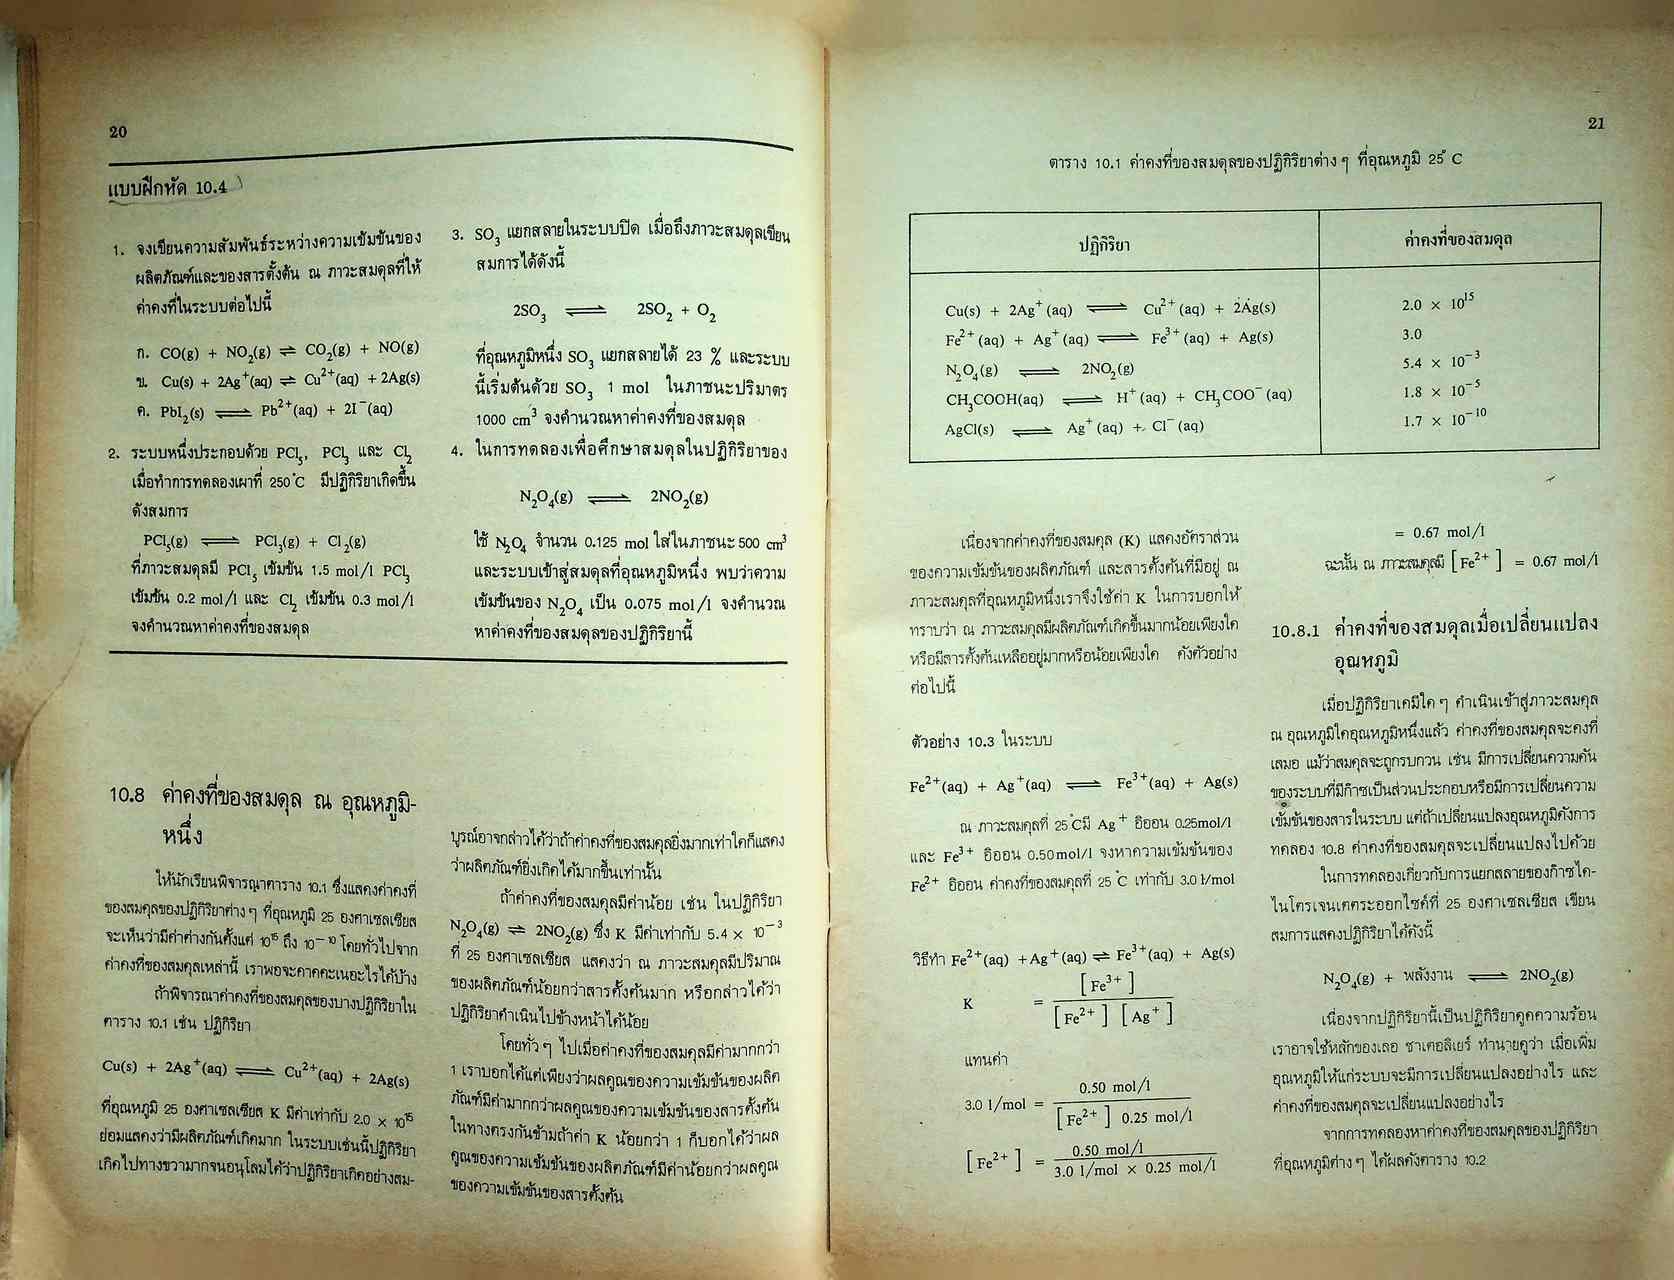 20
แบบฝึกหัด 10.4
1. จงเขียนความสัมพันธ์ระหว่างความเข้มข้นของ
ผลิตภัณฑ์และของสารตั้งต้น ณ ภาวะสมดุลที่ให้
ค่าคงที่ในระบบต่อไปนี้
ก. CO(g) + NO₂(g) ⇌ CO₂(g) + NO(g)
ข. Cu(s) + 2Ag⁺(aq) ⇌ Cu²⁺(aq) + 2Ag(s)
ค. PbI₂(s) ⇌ Pb²⁺(aq) + 2I⁻(aq)
2. ระบบหนึ่งประกอบด้วย PCl₅, PCl₃ และ Cl₂
เมื่อทำการทดลองเผาที่ 250°C มีปฏิกิริยาเกิดขึ้น
ดังสมการ
PCl₅(g) ⇌ PCl₃(g) + Cl₂(g)
ที่ภาวะสมดุลมี PCl₅ เข้มข้น 1.5 mol/l PCl₃
เข้มข้น 0.2 mol/l และ Cl₂ เข้มข้น 0.3 mol/l
จงคำนวณหาค่าคงที่ของสมดุล
3. SO₃ แยกสลายในระบบปิด เมื่อถึงภาวะสมดุลเขียน
สมการได้ดังนี้
2SO₃ ⇌ 2SO₂ + O₂
ที่อุณหภูมิหนึ่ง SO₃ แยกสลายได้ 23 % และระบบ
นี้เริ่มต้นด้วย SO₃ 1 mol ในภาชนะปริมาตร
1000 cm³ จงคำนวณหาค่าคงที่ของสมดุล
4. ในการทดลองเพื่อศึกษาสมดุลในปฏิกิริยาของ
N₂O₄(g) ⇌ 2NO₂(g)
ใช้ N₂O₄ จำนวน 0.125 mol ใส่ในภาชนะ 500 cm³
และระบบเข้าสู่สมดุลที่อุณหภูมิหนึ่ง พบว่าความ
เข้มข้นของ N₂O₄ เป็น 0.075 mol/l จงคำนวณ
หาค่าคงที่ของสมดุลของปฏิกิริยานี้
10.8 ค่าคงที่ของสมดุล ณ อุณหภูมิ-
หนึ่ง
ให้นักเรียนพิจารณาตาราง 10.1 ซึ่งแสดงค่าคงที่
ของสมดุลของปฏิกิริยาต่างๆ ที่อุณหภูมิ 25 องศาเซลเซียส
จะเห็นว่ามีค่าต่างกันตั้งแต่ 10¹⁵ ถึง 10⁻¹⁰ โดยทั่วไปจาก
ค่าคงที่ของสมดุลเหล่านี้ เราพอจะคาดคะเนอะไรได้บ้าง
ถ้าพิจารณาค่าคงที่ของสมดุลของบางปฏิกิริยาใน
ตาราง 10.1 เช่น ปฏิกิริยา
Cu(s) + 2Ag⁺(aq) ⇌ Cu²⁺(aq) + 2Ag(s)
ที่อุณหภูมิ 25 องศาเซลเซียส K มีค่าเท่ากับ 2.0 × 10¹⁵
ย่อมแสดงว่ามีผลิตภัณฑ์เกิดมาก ในระบบเช่นนี้ปฏิกิริยา
เกิดไปทางขวามากจนอนุโลมได้ว่าปฏิกิริยาเกิดอย่างสม-
บูรณ์อาจกล่าวได้ว่าถ้าค่าคงที่ของสมดุลยิ่งมากเท่าใดก็แสดง
ว่าผลิตภัณฑ์ยิ่งเกิดได้มากขึ้นเท่านั้น
ถ้าค่าคงที่ของสมดุลมีค่าน้อย เช่น ในปฏิกิริยา
N₂O₄(g) ⇌ 2NO₂(g) ซึ่ง K มีค่าเท่ากับ 5.4 × 10⁻³
ที่ 25 องศาเซลเซียส แสดงว่า ณ ภาวะสมดุลมีปริมาณ
ของผลิตภัณฑ์น้อยกว่าสารตั้งต้นมาก หรือกล่าวได้ว่า
ปฏิกิริยาดำเนินไปข้างหน้าได้น้อย
โดยทั่วๆ ไปเมื่อค่าคงที่ของสมดุลมีค่ามากกว่า
1 เราบอกได้แต่เพียงว่าผลคูณของความเข้มข้นของผลิต
ภัณฑ์มีค่ามากกว่าผลคูณของความเข้มข้นของสารตั้งต้น
ในทางตรงกันข้ามถ้าค่า K น้อยกว่า 1 ก็บอกได้ว่าผล
คูณของความเข้มข้นของผลิตภัณฑ์มีค่าน้อยกว่าผลคูณ
ของความเข้มข้นของสารตั้งต้น
21
ตาราง 10.1 ค่าคงที่ของสมดุลของปฏิกิริยาต่างๆ ที่อุณหภูมิ 25°C
ปฏิกิริยา ค่าคงที่ของสมดุล
Cu(s) + 2Ag⁺(aq) ⇌ Cu²⁺(aq) + 2Ag(s) 2.0 × 10¹⁵
Fe²⁺(aq) + Ag⁺(aq) ⇌ Fe³⁺(aq) + Ag(s) 3.0
N₂O₄(g) ⇌ 2NO₂(g) 5.4 × 10⁻³
CH₃COOH(aq) ⇌ H⁺(aq) + CH₃COO⁻(aq) 1.8 × 10⁻⁵
AgCl(s) ⇌ Ag⁺(aq) + Cl⁻(aq) 1.7 × 10⁻¹⁰
เนื่องจากค่าคงที่ของสมดุล (K) แสดงอัตราส่วน
ของความเข้มข้นของผลิตภัณฑ์ และสารตั้งต้นที่มีอยู่ ณ
ภาวะสมดุลที่อุณหภูมิหนึ่งเราจึงใช้ค่า K ในการบอกให้
ทราบว่า ณ ภาวะสมดุลมีผลิตภัณฑ์เกิดขึ้นมากน้อยเพียงใด
หรือมีสารตั้งต้นเหลืออยู่มากหรือน้อยเพียงใด ดังตัวอย่าง
ต่อไปนี้
ตัวอย่าง 10.3 ในระบบ
Fe²⁺(aq) + Ag⁺(aq) ⇌ Fe³⁺(aq) + Ag(s)
ณ ภาวะสมดุลที่ 25°C มี Ag⁺ อิออน 0.25mol/l
และ Fe³⁺ อิออน 0.50mol/l จงหาความเข้มข้นของ
Fe²⁺ อิออน ค่าคงที่ของสมดุลที่ 25°C เท่ากับ 3.0 l/mol
วิธีทำ Fe²⁺(aq) +Ag⁺(aq) ⇌ Fe³⁺(aq) + Ag(s)
[Fe³⁺]
K =
[Fe²⁺] [Ag⁺]
แทนค่า
0.50 mol/l
3.0 l/mol =
[Fe²⁺] 0.25 mol/l
0.50 mol/l
[Fe²⁺] =
3.0 l/mol × 0.25 mol/l
= 0.67 mol/l
ฉะนั้น ณ ภาวะสมดุลมี [Fe²⁺] = 0.67 mol/l
10.8.1 ค่าคงที่ของสมดุลเมื่อเปลี่ยนแปลง
อุณหภูมิ
เมื่อปฏิกิริยาเคมีใดๆ ดำเนินเข้าสู่ภาวะสมดุล
ณ อุณหภูมิใดอุณหภูมิหนึ่งแล้ว ค่าคงที่ของสมดุลจะคงที่
เสมอ แม้ว่าสมดุลจะถูกรบกวน เช่น มีการเปลี่ยนความดัน
ของระบบที่มีก๊าซเป็นส่วนประกอบหรือมีการเปลี่ยนความ
เข้มข้นของสารในระบบ แต่ถ้าเปลี่ยนแปลงอุณหภูมิดังการ
ทดลอง 10.8 ค่าคงที่ของสมดุลจะเปลี่ยนแปลงไปด้วย
ในการทดลองเกี่ยวกับการแยกสลายของก๊าซได-
ไนโตรเจนเตตระออกไซด์ที่ 25 องศาเซลเซียส เขียน
สมการแสดงปฏิกิริยาได้ดังนี้
N₂O₄(g) + พลังงาน ⇌ 2NO₂(g)
เนื่องจากปฏิกิริยานี้เป็นปฏิกิริยาดูดความร้อน
เราอาจใช้หลักของเลอ ชาเตอลิเยร์ ทำนายดูว่า เมื่อเพิ่ม
อุณหภูมิให้แก่ระบบจะมีการเปลี่ยนแปลงอย่างไร และ
ค่าคงที่ของสมดุลจะเปลี่ยนแปลงอย่างไร
จากการทดลองหาค่าคงที่ของสมดุลของปฏิกิริยา
ที่อุณหภูมิต่างๆ ได้ผลดังตาราง 10.2